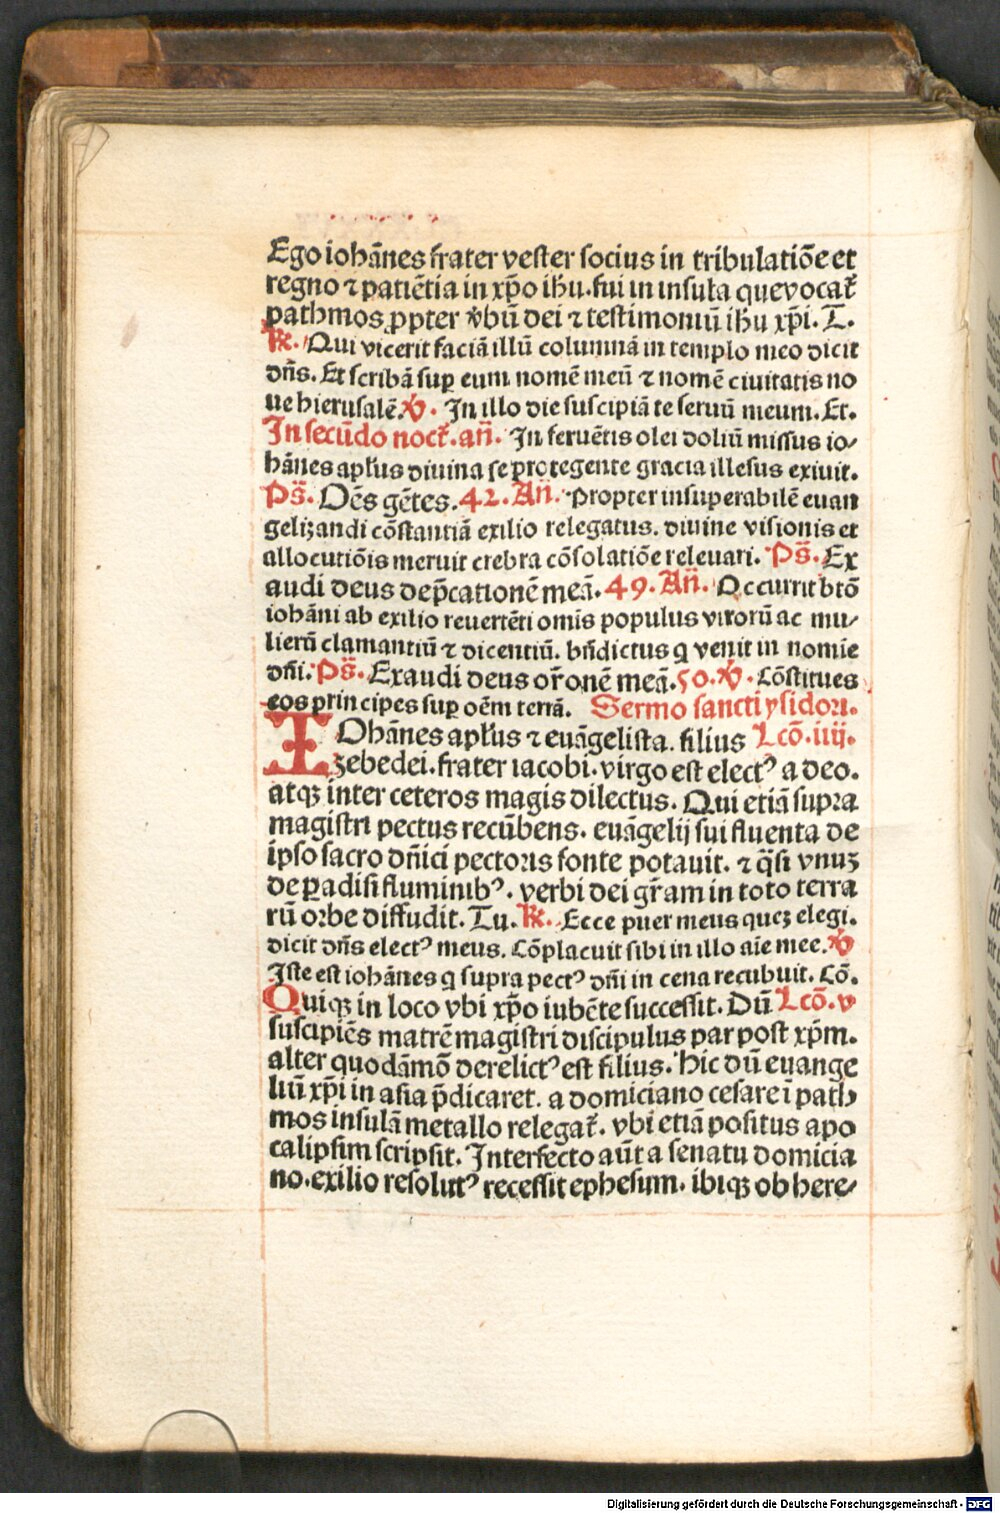 Ego iohānes frater vester socius in tribulatiōe et
regno ⁊ patiētia in xp̄o ih̄u. fui in insula que vocat᷑
pathmos ꝓpter v̓bū dei ⁊ testimoniū ih̄u xp̄i. T.
℟. Qui vicerit faciā illū columnā in templo meo dicit
dn̄s. Et scribā suꝑ eum nomē meū ⁊ nomē ciuitatis no
ue hierusalē. ℣. In illo die suscipiā te seruū meum. Et.
In secūdo noct᷑. an̄. In feruētis olei doliū missus io/
hānes apl̄us diuina se protegente gracia illesus exiuit.
Ps̄. Oēs gētes. 42. An̄. Propter insuperabilē euan
gelizandi cōstantiā exilio relegatus. diuine visionis et
allocutiōis meruit crebra cōsolatiōe releuari. Ps̄. Ex
audi deus dep̄cationē meā. 49. An̄. Occurrit btō
iohāni ab exilio reuertēti omīs populus virorū ac mu/
lierū clamantiū ⁊ dicentiū. bn̄dictus q venit in nomīe
dn̄i. Ps̄. Exaudi deus or̄onē meā. 50. ℣. Cōstitues
eos principes suꝑ oēm terrā. Sermo sancti ysidori.
IOhānes apl̄us ⁊ euāgelista. filius Lcō. iiij.
zebedei. frater iacobi. virgo est electꝰ a deo.
atqꝫ inter ceteros magis dilectus. Qui etiā supra
magistri pectus recūbens. euāgelij sui fluenta de
ipso sacro dn̄ici pectoris fonte potauit. ⁊ q̈si vnuꝫ
de ꝑadisi fluminibꝰ. verbi dei gr̄am in toto terra
rū orbe diffudit. Tu. ℟. Ecce puer meus queꝫ elegi.
dicit dn̄s electꝰ meus. Cōplacuit sibi in illo aīe mee. ℣
Iste est iohānes q supra pectꝰ dn̄i in cena recubuit. Cō.
Quiqꝫ in loco vbi xp̄o iubēte successit. Dū Lcō. v
suscipiēs matrē magistri discipulus par post xp̄m.
alter quodāmō derelictꝰ est filius. Hic dū euange
liū xp̄i in asia p̄dicaret. a domiciano cesare ī path
mos insulā metallo relegat᷑. vbi etiā positus apo
calipsim scripsit. Interfecto aūt a senatu domicia
no. exilio resolutꝰ recessit ephesum. ibiqꝫ ob here/
Digitalisierung gefördert durch die Deutsche Forschungsgemeinschaft - DFG